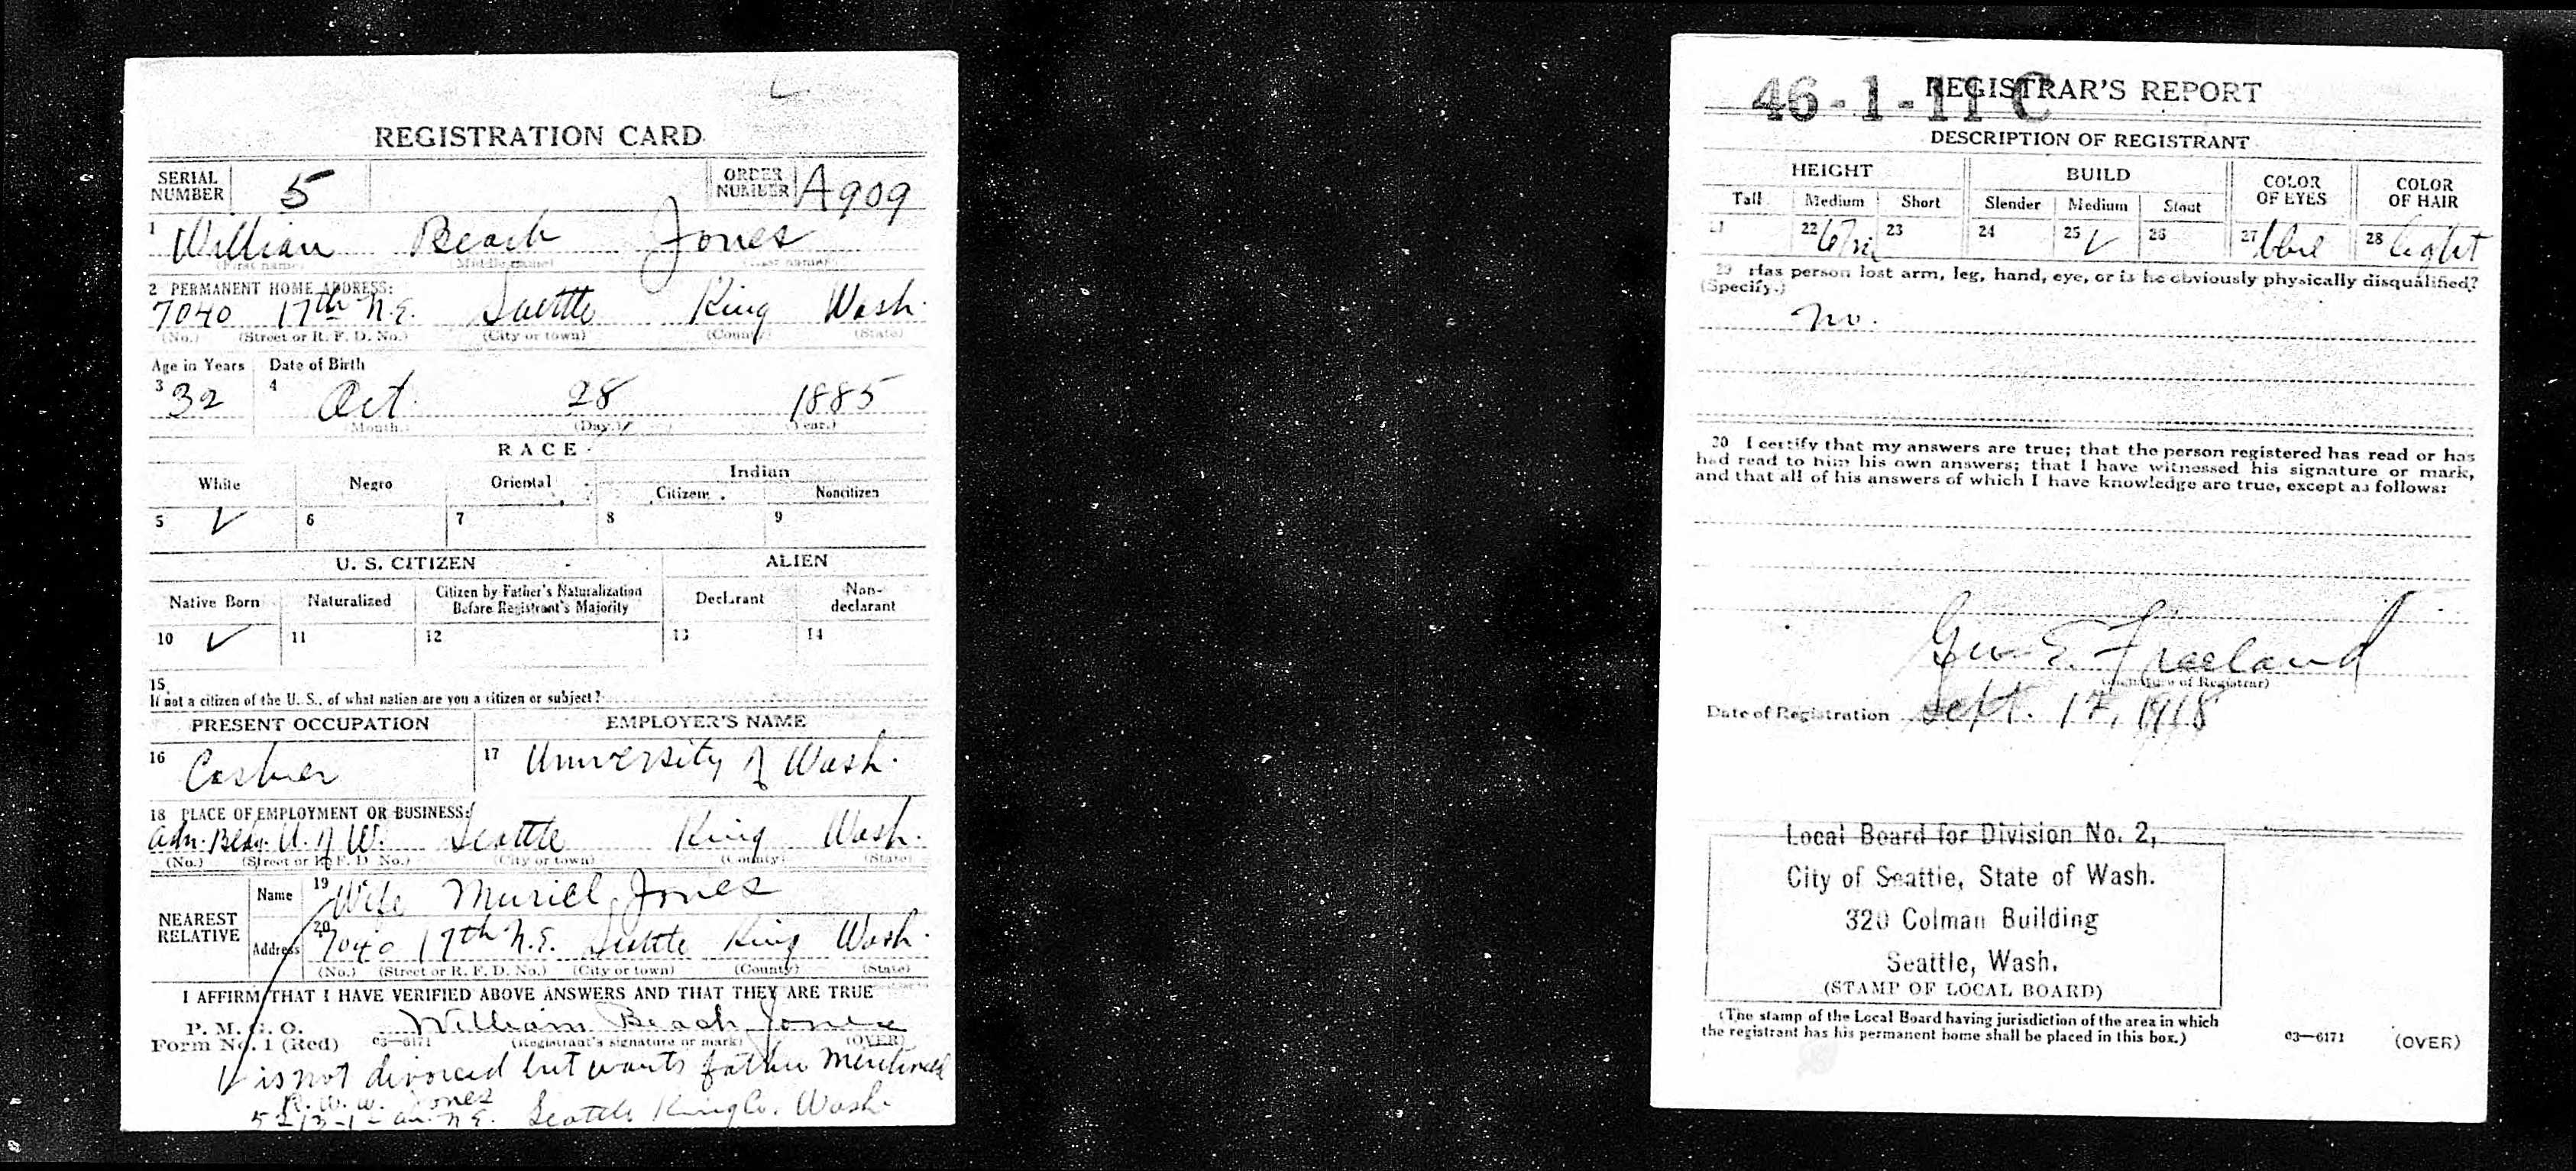 REGISTRATION CARD
SERIAL NUMBER 5 ORDER NUMBER A909
1 William Beach Jones
(First name) (Middle name) (Last name)
2 PERMANENT HOME ADDRESS:
7040 17th N.E. Seattle King Wash.
(No.) (Street or R. F. D. No.) (City or town) (County) (State)
Age in Years Date of Birth
3 32 4 Oct. 28 1885
(Month.) (Day.) (Year.)
RACE
White Negro Oriental Indian
Citizen Noncitizen
5 ✓ 6 7 8 9
U. S. CITIZEN ALIEN
Native Born Naturalized Citizen by Father's Naturalization Before Registrant's Majority Declarant Non-declarant
10 ✓ 11 12 13 14
15
If not a citizen of the U. S., of what nation are you a citizen or subject?
PRESENT OCCUPATION EMPLOYER'S NAME
16 Cashier 17 University of Wash.
18 PLACE OF EMPLOYMENT OR BUSINESS:
Adm. Bldg. U. of W. Seattle King Wash.
(No.) (Street or R. F. D. No.) (City or town) (County) (State)
NEAREST RELATIVE Name 19 Wife Muriel Jones
Address 20 7040 17th N.E. Seattle King Wash.
(No.) (Street or R. F. D. No.) (City or town) (County) (State)
I AFFIRM THAT I HAVE VERIFIED ABOVE ANSWERS AND THAT THEY ARE TRUE
P. M. G. O.
Form No. 1 (Red) 03—6171 William Beach Jones
(Registrant's signature or mark) (OVER)
✓ is not divorced but wants father mentioned
R. W. W. Jones
Seattle King Co. Wash.
46-1-11 C
REGISTRAR'S REPORT
DESCRIPTION OF REGISTRANT
HEIGHT BUILD COLOR OF EYES COLOR OF HAIR
Tall Medium Short Slender Medium Stout
21 22 23 24 25 ✓ 26 27 blue 28 light
29 Has person lost arm, leg, hand, eye, or is he obviously physically disqualified?
(Specify.)
no.
30 I certify that my answers are true; that the person registered has read or has
had read to him his own answers; that I have witnessed his signature or mark,
and that all of his answers of which I have knowledge are true, except as follows:
Geo. E. Freeland
(Signature of Registrar)
Date of Registration Sept. 12, 1918
Local Board for Division No. 2,
City of Seattle, State of Wash.
320 Colman Building
Seattle, Wash.
(STAMP OF LOCAL BOARD)
(The stamp of the Local Board having jurisdiction of the area in which
the registrant has his permanent home shall be placed in this box.)
03—6171 (OVER)